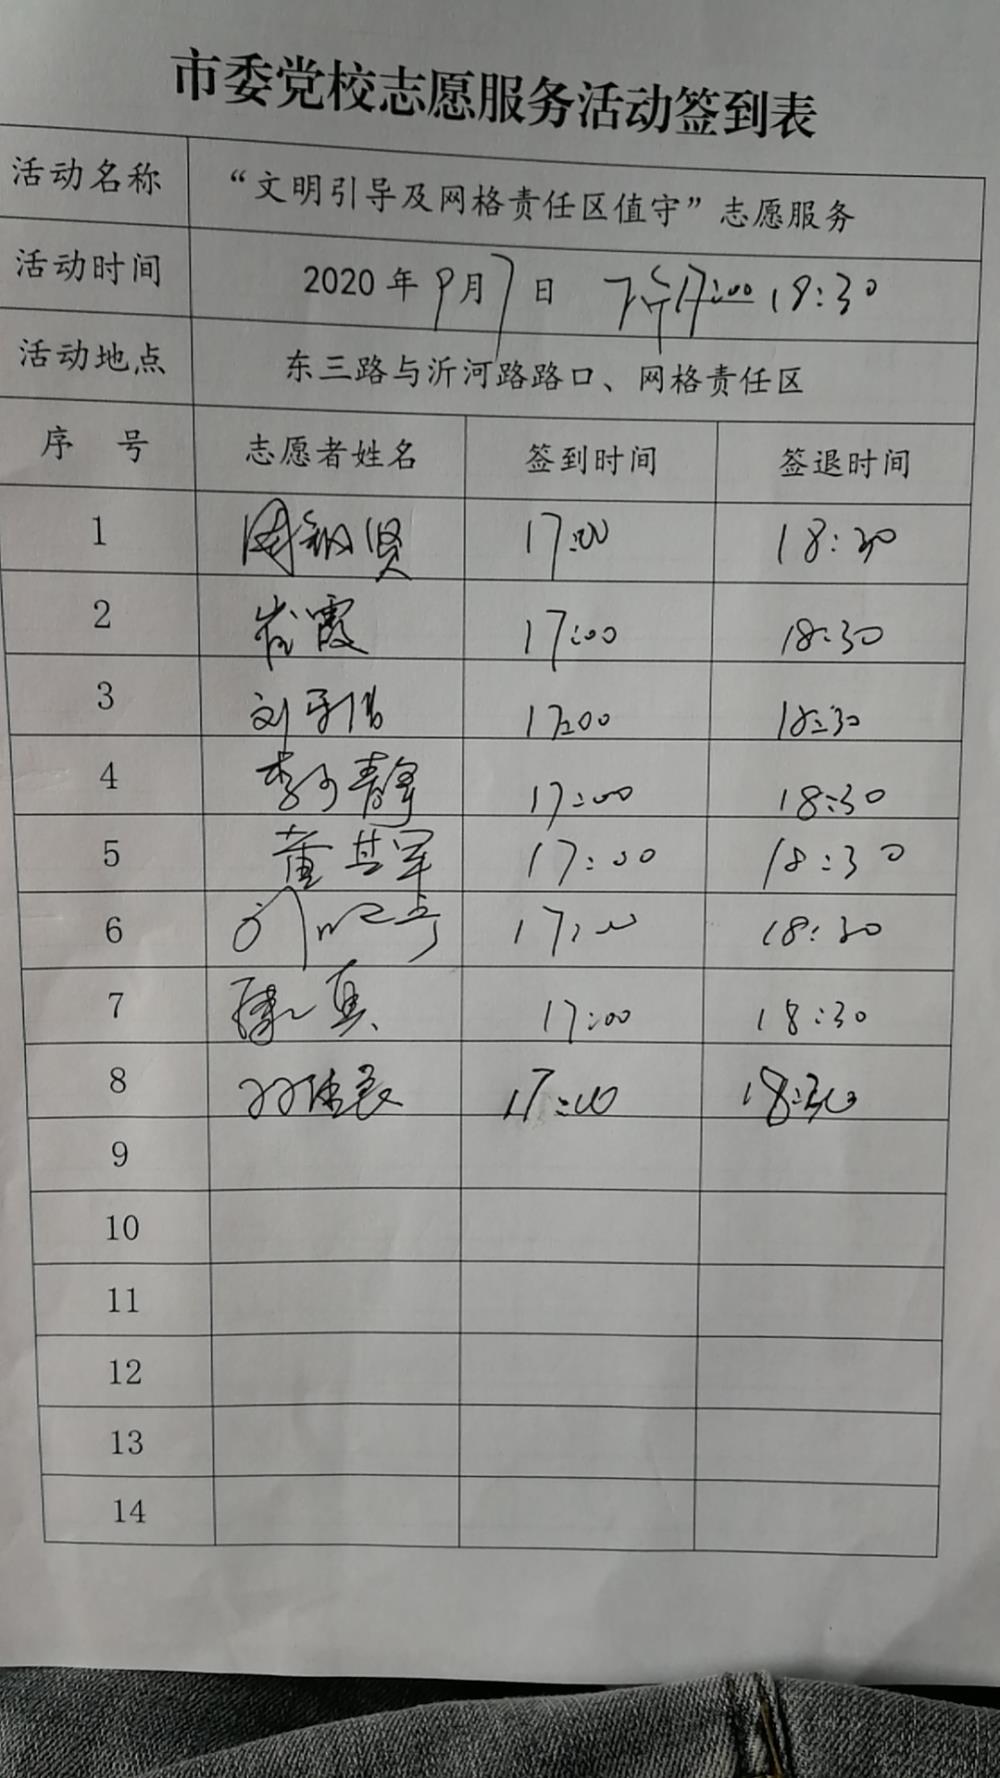 市委党校志愿服务活动签到表
活动名称 “文明引导及网格责任区值守”志愿服务
活动时间 2020年9月7日 下午17:00 18:30
活动地点 东三路与沂河路路口、网格责任区
序 号 志愿者姓名 签到时间 签退时间
1 17:00 18:30
2 崔霞 17:00 18:30
3 刘 17:00 18:30
4 李 静 17:00 18:30
5 董其军 17:00 18:30
6 17:00 18:30
7 17:00 18:30
8 17:00 18:30
9
10
11
12
13
14